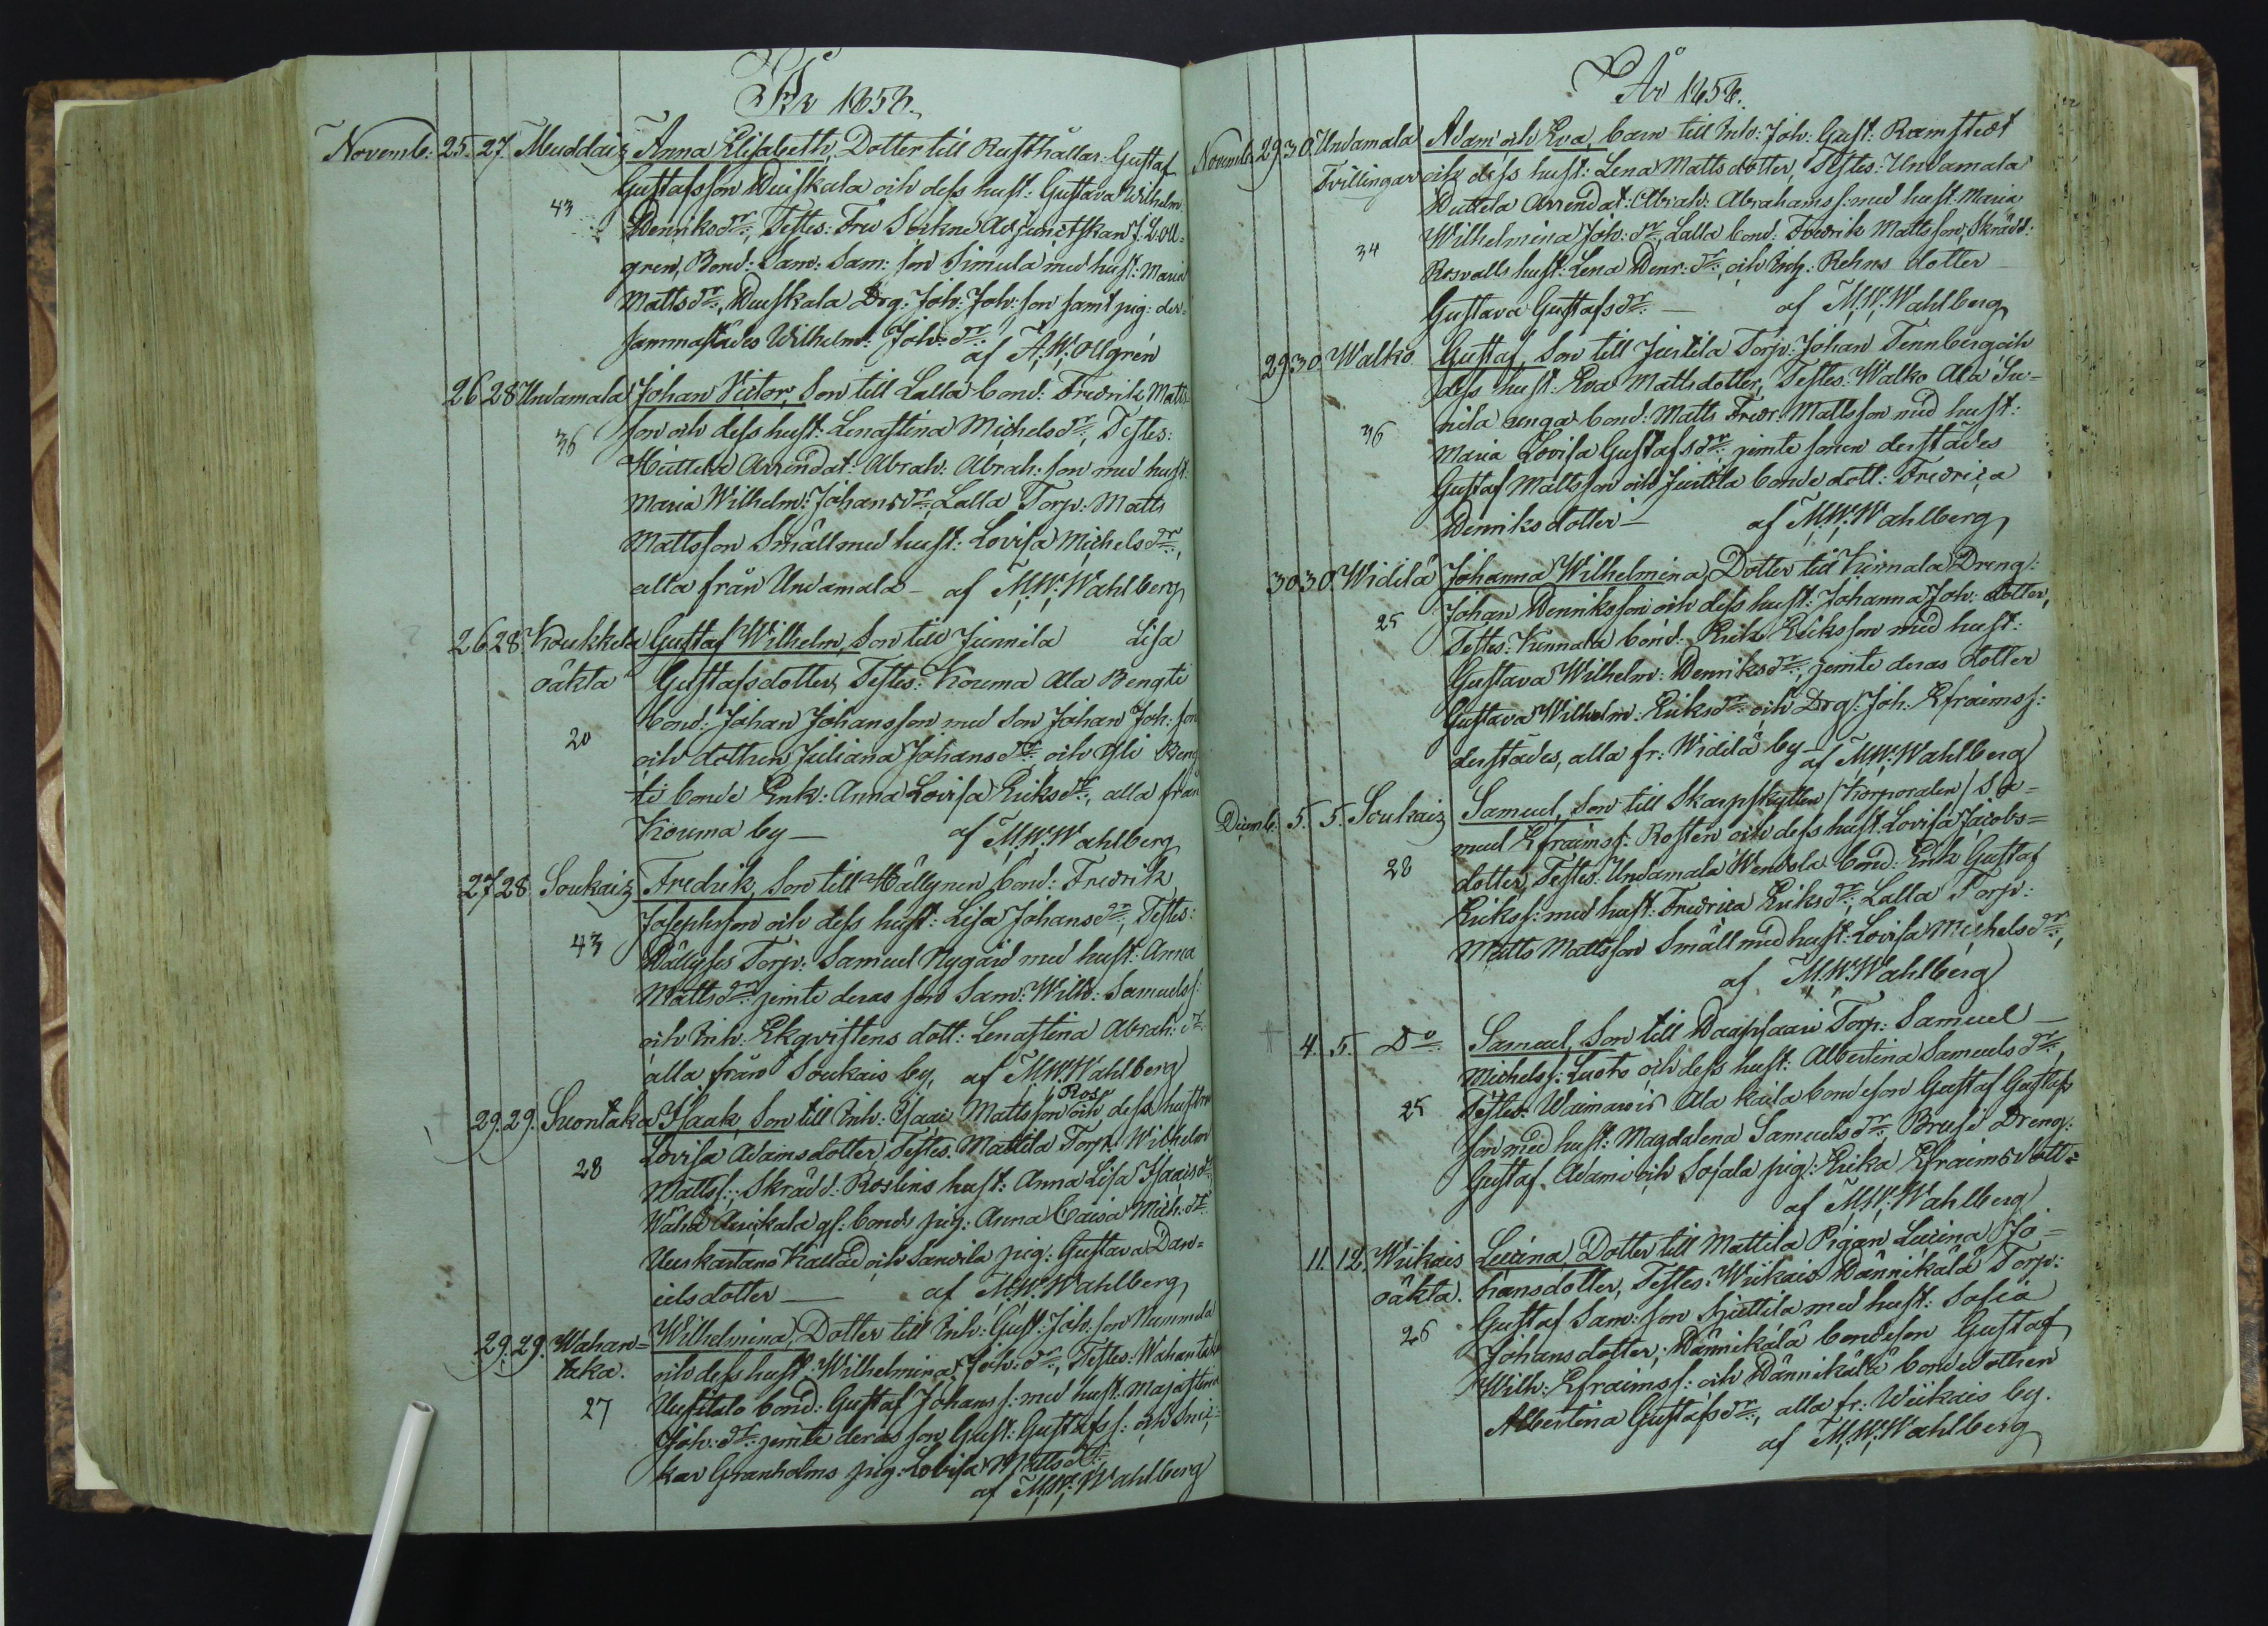 År 1858.
Novemb: 25. 27. Muddais Anna Elisabeth, Dotter till Rusthållar: Gustaf
Gustafsson Huiskala och dess hust: Gustava Wilhelm:
43 Henriksdr:, Testes: Fru Sockne Adjunctskan J. L. Oll-
gren, Bond: Sam: Sam: son Simula med hust: Maria
Mattsdr:, Huiskala Drg: Joh: Joh: son samt pig: der-
sammastädes Wilhelm: Joh: dr:
af A. W. Ollgrén
26 28 Undamala Johan Victor, Son till Lalla bond: Fredrik Matts-
36 son och dess hust: Lenastina Michelsdr:, Testes:
Huttela Arrendat: Abrah: Abrah: son med hust:
Maria Wilhelm: Johansdr: Lalla Torp: Matts
Mattsson Småll med hust: Lovisa Michelsdr:,
alla från Undamala – af M. W. Wahlberg
26 28. Koukkela Gustaf Wilhelm, Son till Junnila Lisa
oäkta Gustafsdotter, Testes: Kouma Ala Bengti
bond: Johan Johansson med Son Johan Joh: son
20 och dottren Juliana Johansdr: och Yli Beng
ti bonde Enk: Anna Lovisa Eriksdr:, alla från
Kouma by – af M. W. Wahlberg
27 28 Soukais Fredrik, Son till Hällynen bond: Fredrik
Josephsson och dess hust: Lisa Johansdr:, Testes:
43 Torp: Samuel Nygård med hust: Anna
Mattsdr: jemte deras son Sam: Wilh: Samuels s:
och Inh: Ekqvistens dott: Lenastina Abrah: dr:
alla från Soukais by, af M. W. Wahlberg
29. 29. Suontaka Isaak, Son till Inh: Isaac Mattsson Ros och dess hustru
Lovisa Adamsdotter, Testes: Mattila Torp: Wilhelm
28 Matts s:, Skrädd: Roslins hust: Anna Lisa Isaacs dr:
Wähä bonds pig: Anna Caisa Mich: dr:
Uuskartano och Sandila pig: Gustava Dan-
ielsdotter – af M. W. Wahlberg
29. 29. Wahan- Wilhelmina, Dotter till Inh: Gust: Joh: son Nummila
taka. och dess hust: Wilhelmina Joh: dr:, Testes: Wahantaka
27 Uusitalo bond: Gustaf Johans s: med hust: Majastina
Joh: dr: jemte deras son Gust: Gustafs s: och Snic-
kar Granholms pig: Lovisa Mattsdr:
af M. W. Wahlberg
År 1858.
Novemb: 29 30. Undamala Adam och Eva, barn till Inh: Joh: Gust: Ramstedt
Tvillingar och dess hust: Lena Mattsdotter, Testes: Undamala
Huttela Arrendat: Abrah: Abrahams s: med hust: Maria
34 Wilhelmina Joh: dr:, Lalla bond: Fredrik Mattsson, Skrädd:
Rosvalls hust: Lena Henr: dr:, och Rehns dotter
Gustava Gustafsdr: – af M. W. Wahlberg
29 30 Walko Gustaf, Son till Juntila Torp: Johan Tennberg och
dess hust: Eva Mattsdotter, Testes: Walko Ala Ju-
36 nila unga bond: Matts Fredr: Mattsson med hust:
Maria Lovisa Gustafsdr: jemte sonen derstädes
Gustaf Mattsson och Juntila bonde dott: Fredrica
Henriksdotter – af M. W. Wahlberg
30 30. Widilä Johanna Wilhelmina, Dotter till Kunnala Dreng:
25 Johan Henriksson och dess hust: Johanna Joh: dotter,
Testes: Kunnala bond: Erik Eriksson med hust:
Gustava Wilhelm: Henriksdr: jemte deras dotter
Gustava Wilhelm: Eriksdr: och Drg: Joh: Efraims s:
derstädes, alla fr: Widilä by – af M. W. Wahlberg
Decemb: 5. 5. Soukais Samuel, Son till Skarpskytten (Korporalen) Sa-
muel Efraims s: Rosten och dess hust: Lovisa Jacobs-
28 dotter, Testes: Undamala Wendola bond: Erik Gustaf
Eriks s: med hust: Fredrica Eriksdr:, Lalla Torp:
Matts Mattsson Småll med hust: Lovisa Michelsdr:,
af M. W. Wahlberg
4. 5. Do Samuel, Son till Haapsaari Torp: Samuel
Michels s: Luoto och dess hust: Albertina Samuelsdr:,
25 Testes: Waimaris Ala kaila bondeson Gustaf Gustafs
son med hust: Magdalena Samuelsdr:, Brusi Dreng:
Gustaf Adam: och Sojala pig: Erika Efraimsdott:
af M. W. Wahlberg
11. 12. Wiikais Lucina, Dotter till Mattila Pigan Lucina Jo-
oäkta. hansdotter, Testes: Wiikais Hännikälä Torp:
26 Gustaf Sam: son Hjuttila med hust: Sofia
Johansdotter; Hännikälä bondeson Gustaf
Wilh: Efraims s: och Hännikälä bondedottren
Albertina Gustafsdr:, alla fr: Wiikais by.
af M. W. Wahlberg